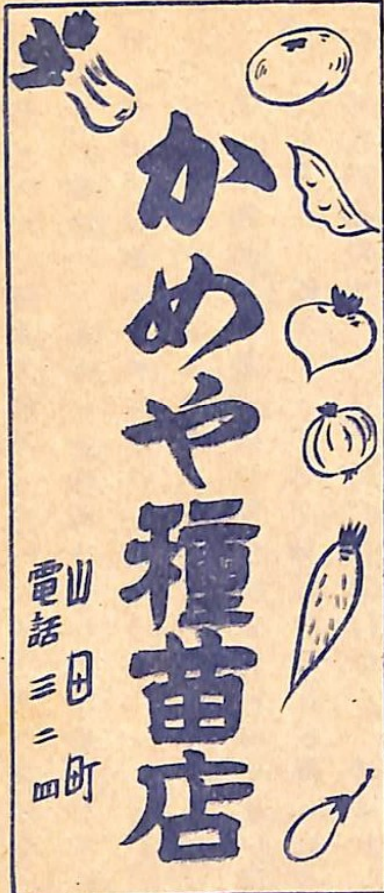 かめや種苗店
山田町
電話三二四